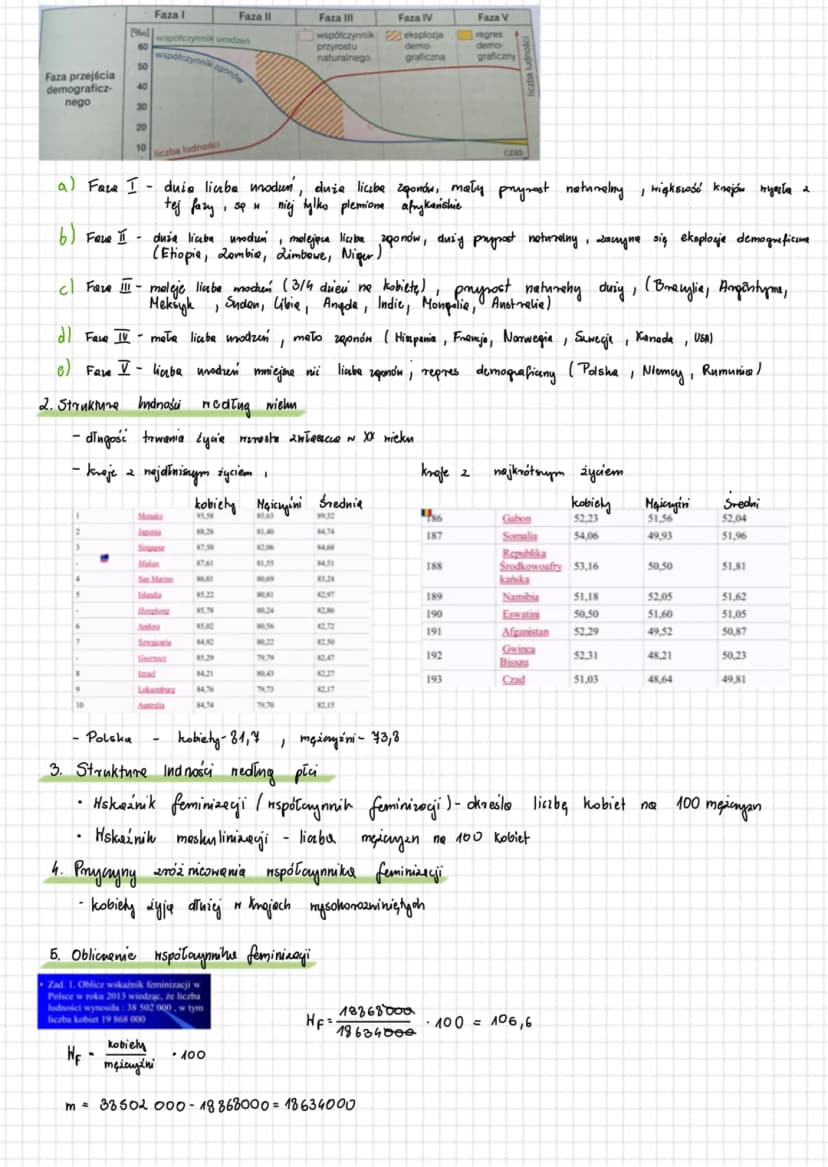 Faza I Faza II Faza III Faza IV Faza V
[‰]
współczynnik urodzeń
współczynnik zgonów
współczynnik przyrostu naturalnego
eksplozja demograficzna
regres demograficzny
liczba ludności
Faza przejścia demograficznego
60
50
40
30
20
10
liczba ludności
czas
a) Faza I - duża liczba urodzeń, duża liczba zgonów, mały przyrost naturalny, większość krajów wyszła z
tej fazy, są w niej tylko plemiona afrykańskie
b) Faza II - duża liczba urodzeń, malejąca liczba zgonów, duży przyrost naturalny, zaczyna się eksplozja demograficzna
(Etiopia, Zambia, Zimbawe, Niger)
c) Faza III - maleje liczba urodzeń (3/4 dzieci na kobietę), przyrost naturalny duży, (Brazylia, Argentyna,
Meksyk, Sudan, Libia, Angola, Indie, Mongolia, Australia)
d) Faza IV - mała liczba urodzeń, mało zgonów (Hiszpania, Francja, Norwegia, Szwecja, Kanada, USA)
e) Faza V - liczba urodzeń mniejsza niż liczba zgonów, regres demograficzny (Polska, Niemcy, Rumunia)
2. Struktura ludności według wieku
- długość trwania życia wzrosła zwłaszcza w XX wieku
- kraje z najdłuższym życiem
kobiety Mężczyźni Średnia
1 Monako 93,58 85,63 89,52
2 Japonia 88,26 81,40 84,74
3 Singapur 87,50 82,06 84,68
- Makau 87,61 81,55 84,51
4 San Marino 86,01 80,69 83,24
5 Islandia 85,22 80,81 82,97
- Hongkong 85,78 80,24 82,86
6 Andora 85,02 80,56 82,72
7 Szwajcaria 84,92 80,22 82,50
- Guernsey 85,29 79,79 82,47
8 Izrael 84,21 80,43 82,27
9 Luksemburg 84,76 79,73 82,17
10 Australia 84,74 79,70 82,15
kraje z najkrótszym życiem
kobiety Mężczyźni Średni
186 Gabon 52,23 51,56 52,04
187 Somalia 54,06 49,93 51,96
188 Republika Środkowoafrykańska 53,16 50,50 51,81
189 Namibia 51,18 52,05 51,62
190 Eswatini 50,50 51,60 51,05
191 Afganistan 52,29 49,52 50,87
192 Gwinea Bissau 52,31 48,21 50,23
193 Czad 51,03 48,64 49,81
- Polska - kobiety - 81,7, mężczyźni - 73,8
3. Struktura ludności według płci
• Wskaźnik feminizacji (współczynnik feminizacji) - określa liczbę kobiet na 100 mężczyzn
• Wskaźnik maskulinizacji - liczba mężczyzn na 100 kobiet
4. Przyczyny zróżnicowania współczynnika feminizacji
- kobiety żyją dłużej w krajach wysokorozwiniętych
5. Obliczenie współczynnika feminizacji
• Zad. 1. Oblicz wskaźnik feminizacji w
Polsce w roku 2013 wiedząc, że liczba
ludności wynosiła : 38 502 000 , w tym
liczba kobiet 19 868 000
WF = 19868000 / 18634000 · 100 = 106,6
WF = kobiety / mężczyźni · 100
m = 38502 000 - 19868000 = 18634000